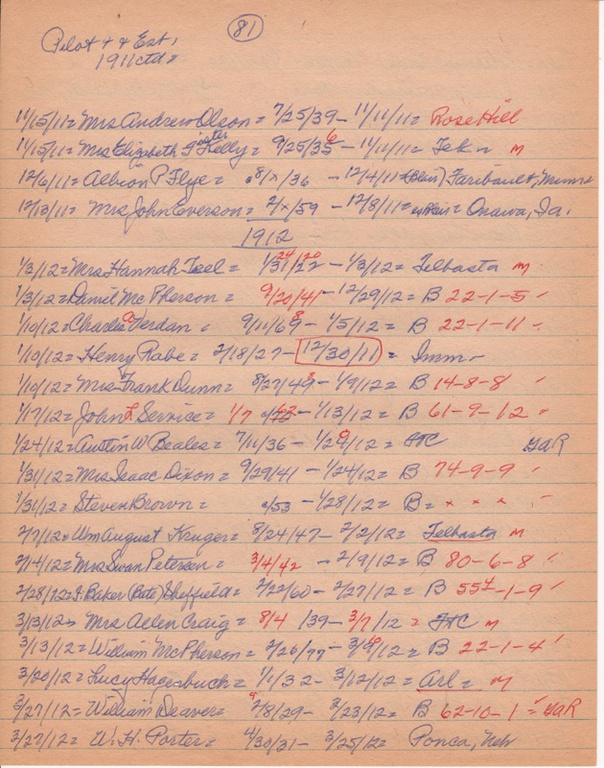 81
Pilot + + Ext,
1911 ctd =
11/15/11 = Mrs Andrew Olson = 7/25/39 - 11/11/11 = Rose Hill
11/15/11 = Mrs Elizabeth Kelly = 9/25/35 6 - 11/11/11 = Tek n m
12/6/11 = Albion P. Flye = 8/x/36 - 12/4/11 (Blair) Faribault, Minn
12/13/11 = Mrs John Everson = 2/x/59 - 12/8/11 = Blair = Onawa, Ia.
1912
1/3/12 = Mrs Hannah = 1/31/22 24/20 - 1/3/12 = Telbasta m
1/3/12 = Daniel McPherson = 9/20/41 - 12/29/12 = B 22-1-5
1/10/12 = Charles Verdan = 9/11/69 8 - 1/5/12 = B 22-1-11
1/10/12 = Henry Rabe = 2/18/27 - 12/30/11 = Imm
1/10/12 = Mrs Frank Dunn = 8/27/49 8 - 1/9/12 = B 14-8-8
1/17/12 = John L Service = 1/7 - 1/13/12 = B 61-9-12
1/24/12 = Austin W Beales = 7/11/36 - 1/20/12 = HC GaR
1/31/12 = Mrs Isaac Dixon = 9/29/41 - 1/24/12 = B 74-9-9
1/31/12 = Steven Brown = /53 - 1/28/12 = B = x x x
2/7/12 = Wm August Kruger = 8/24/47 - 2/2/12 = Telbasta m
2/14/12 = Mrs Swan Petersen = 3/4/42 - 2/9/12 = B 80-6-8
2/28/12 = Baker (Bate) Sheffield = 2/22/60 - 2/27/12 = B 55½-1-9
3/13/12 = Mrs Allen Craig = 8/4 /39 - 3/7/12 = HC m
3/13/12 = William McPherson = 2/26/77 - 3/9/12 = B 22-1-4
3/20/12 = Lucy Hagenbuch = 1/1/32 - 3/12/12 = Arl = m
3/27/12 = William Deaver = 2/8/29 - 3/23/12 = B 62-10-1 = GaR
3/27/12 = W. H. Porter = 4/30/31 - 3/25/12 = Ponca, Neb